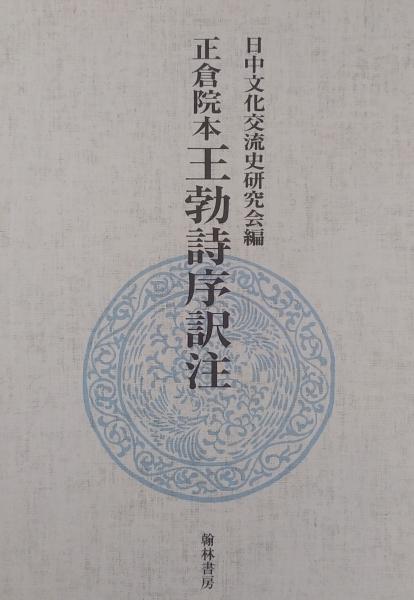 日中文化交流史研究会編
正倉院本王勃詩序訳注
翰林書房